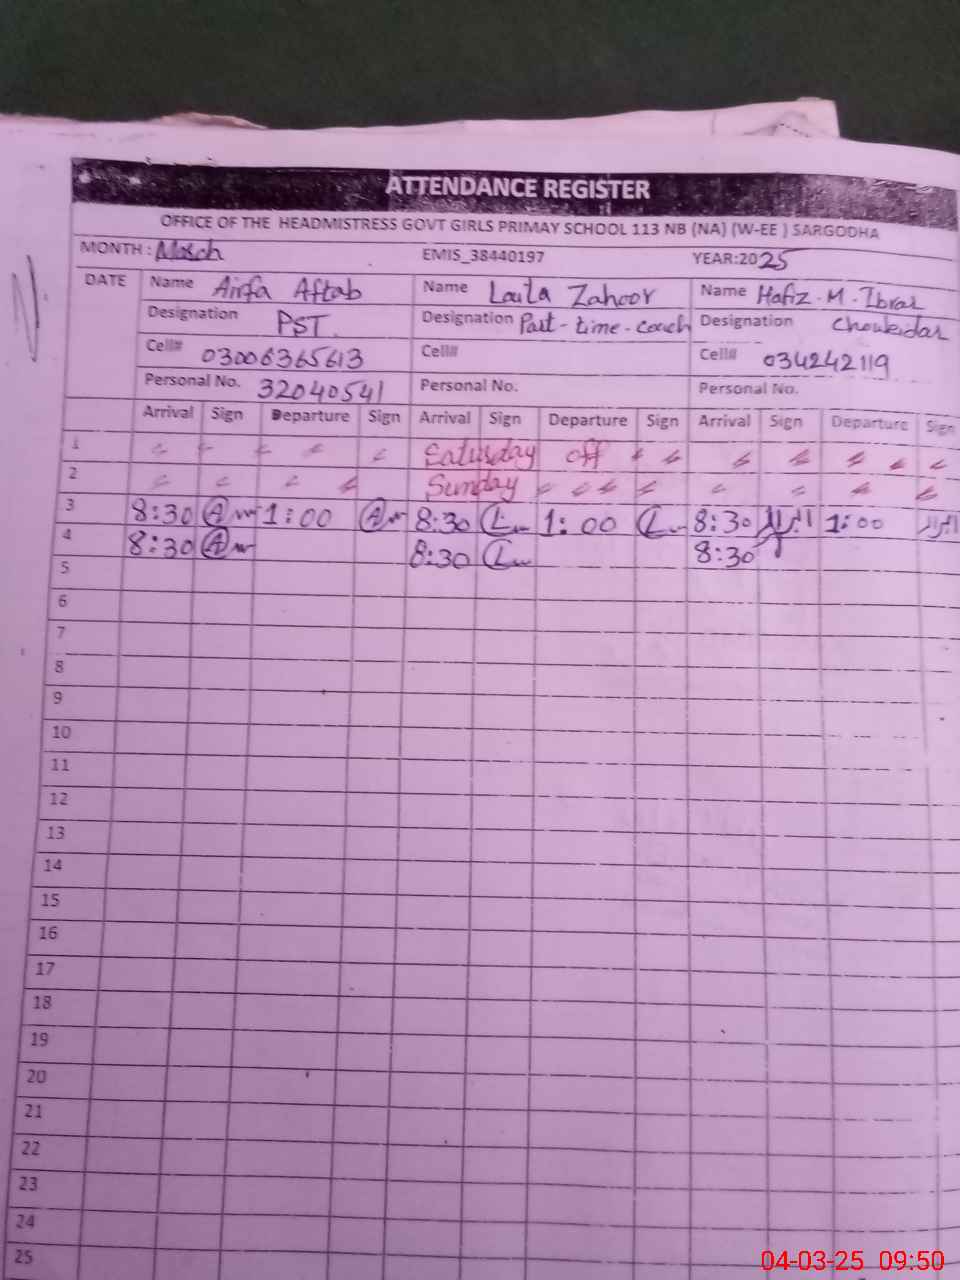 ATTENDANCE REGISTER
OFFICE OF THE HEADMISTRESS GOVT GIRLS PRIMAY SCHOOL 113 NB (NA) (W-EE ) SARGODHA
MONTH : March EMIS_38440197 YEAR:2025
DATE Name Airfa Aftab Name Laila Zahoor Name Hafiz . M . Ibrar
Designation PST. Designation Part - time - coach Designation Chowkidar
Cell# 03006365613 Cell# Cell# 034242119
Personal No. 32040541 Personal No. Personal No.
Arrival Sign Departure Sign Arrival Sign Departure Sign Arrival Sign Departure Sign
1 Saturday off
2 Sunday
3 8:30 A 1:00 A 8:30 L 1:00 L 8:30 ابرار 1:00 ابرار
4 8:30 A 8:30 L 8:30
5
6
7
8
9
10
11
12
13
14
15
16
17
18
19
20
21
22
23
24
25
04-03-25 09:50